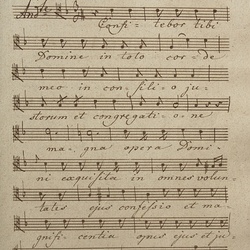 And.te
Confi - tebor tibi
Domine in toto cor - de
meo in con - sili - o ju -
storum et congregati - o - ne
ma - gna opera Domi -
ni exquisita in omnes volun -
tates ejus confessio et ma -
gnifi - centia opus ejus et ju -